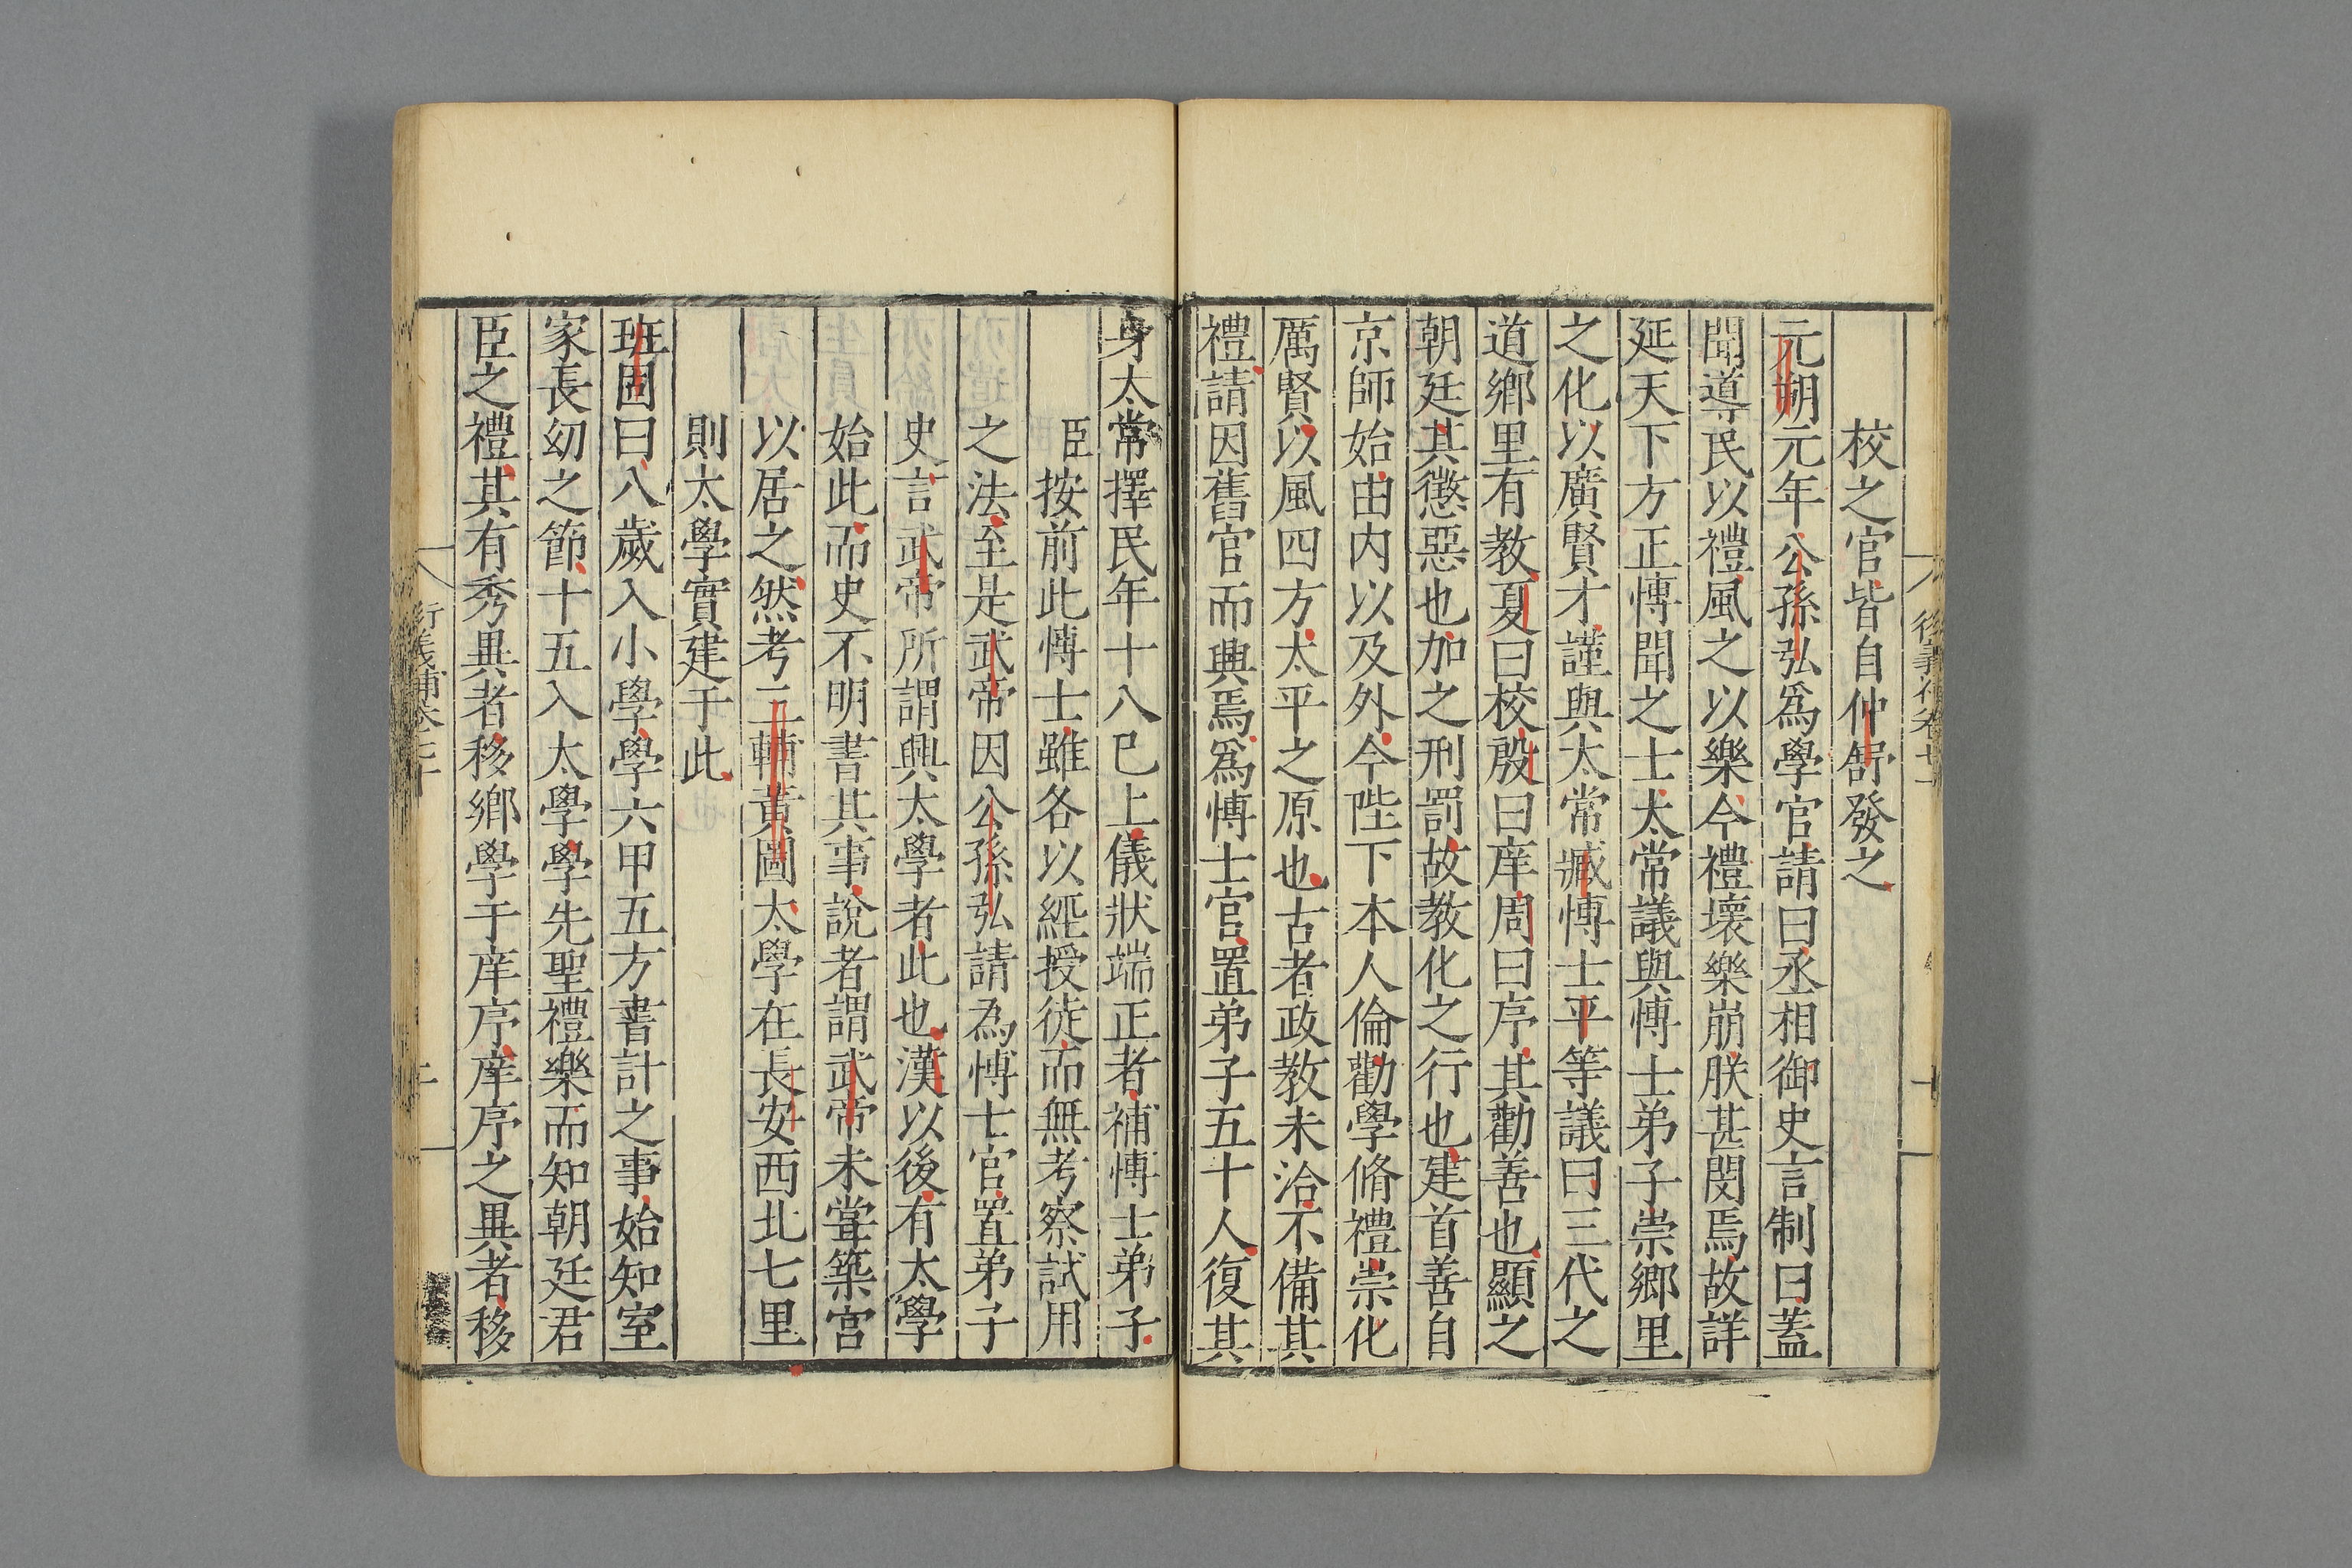 校之官皆自仲舒發之
元朔元年公孫弘爲學官請曰丞相御史言制曰蓋
聞導民以禮風之以樂今禮壞樂崩朕甚閔焉故詳
延天下方正博聞之士太常議與博士弟子崇鄉里
之化以廣賢才謹與太常臧博士平等議曰三代之
道鄉里有教夏曰校殷曰庠周曰序其勸善也顯之
朝廷其懲惡也加之刑罰故教化之行也建首善自
京師始由内以及外今陛下本人倫勸學脩禮崇化
厲賢以風四方太平之原也古者政教未洽不備其
禮請因舊官而興焉爲博士官置弟子五十人復其
身太常擇民年十八已上儀狀端正者補博士弟子
臣按前此博士雖各以經授徒而無考察試用
之法至是武帝因公孫弘請為博士官置弟子
史言武帝所謂興太學者此也漢以後有太學
始此而史不明書其事說者謂武帝未嘗築宮
以居之然考三輔黃圖太學在長安西北七里
則太學實建于此
班固曰八歲入小學學六甲五方書計之事始知室
家長幼之節十五入太學學先聖禮樂而知朝廷君
臣之禮其有秀異者移鄉學于庠序庠序之異者移